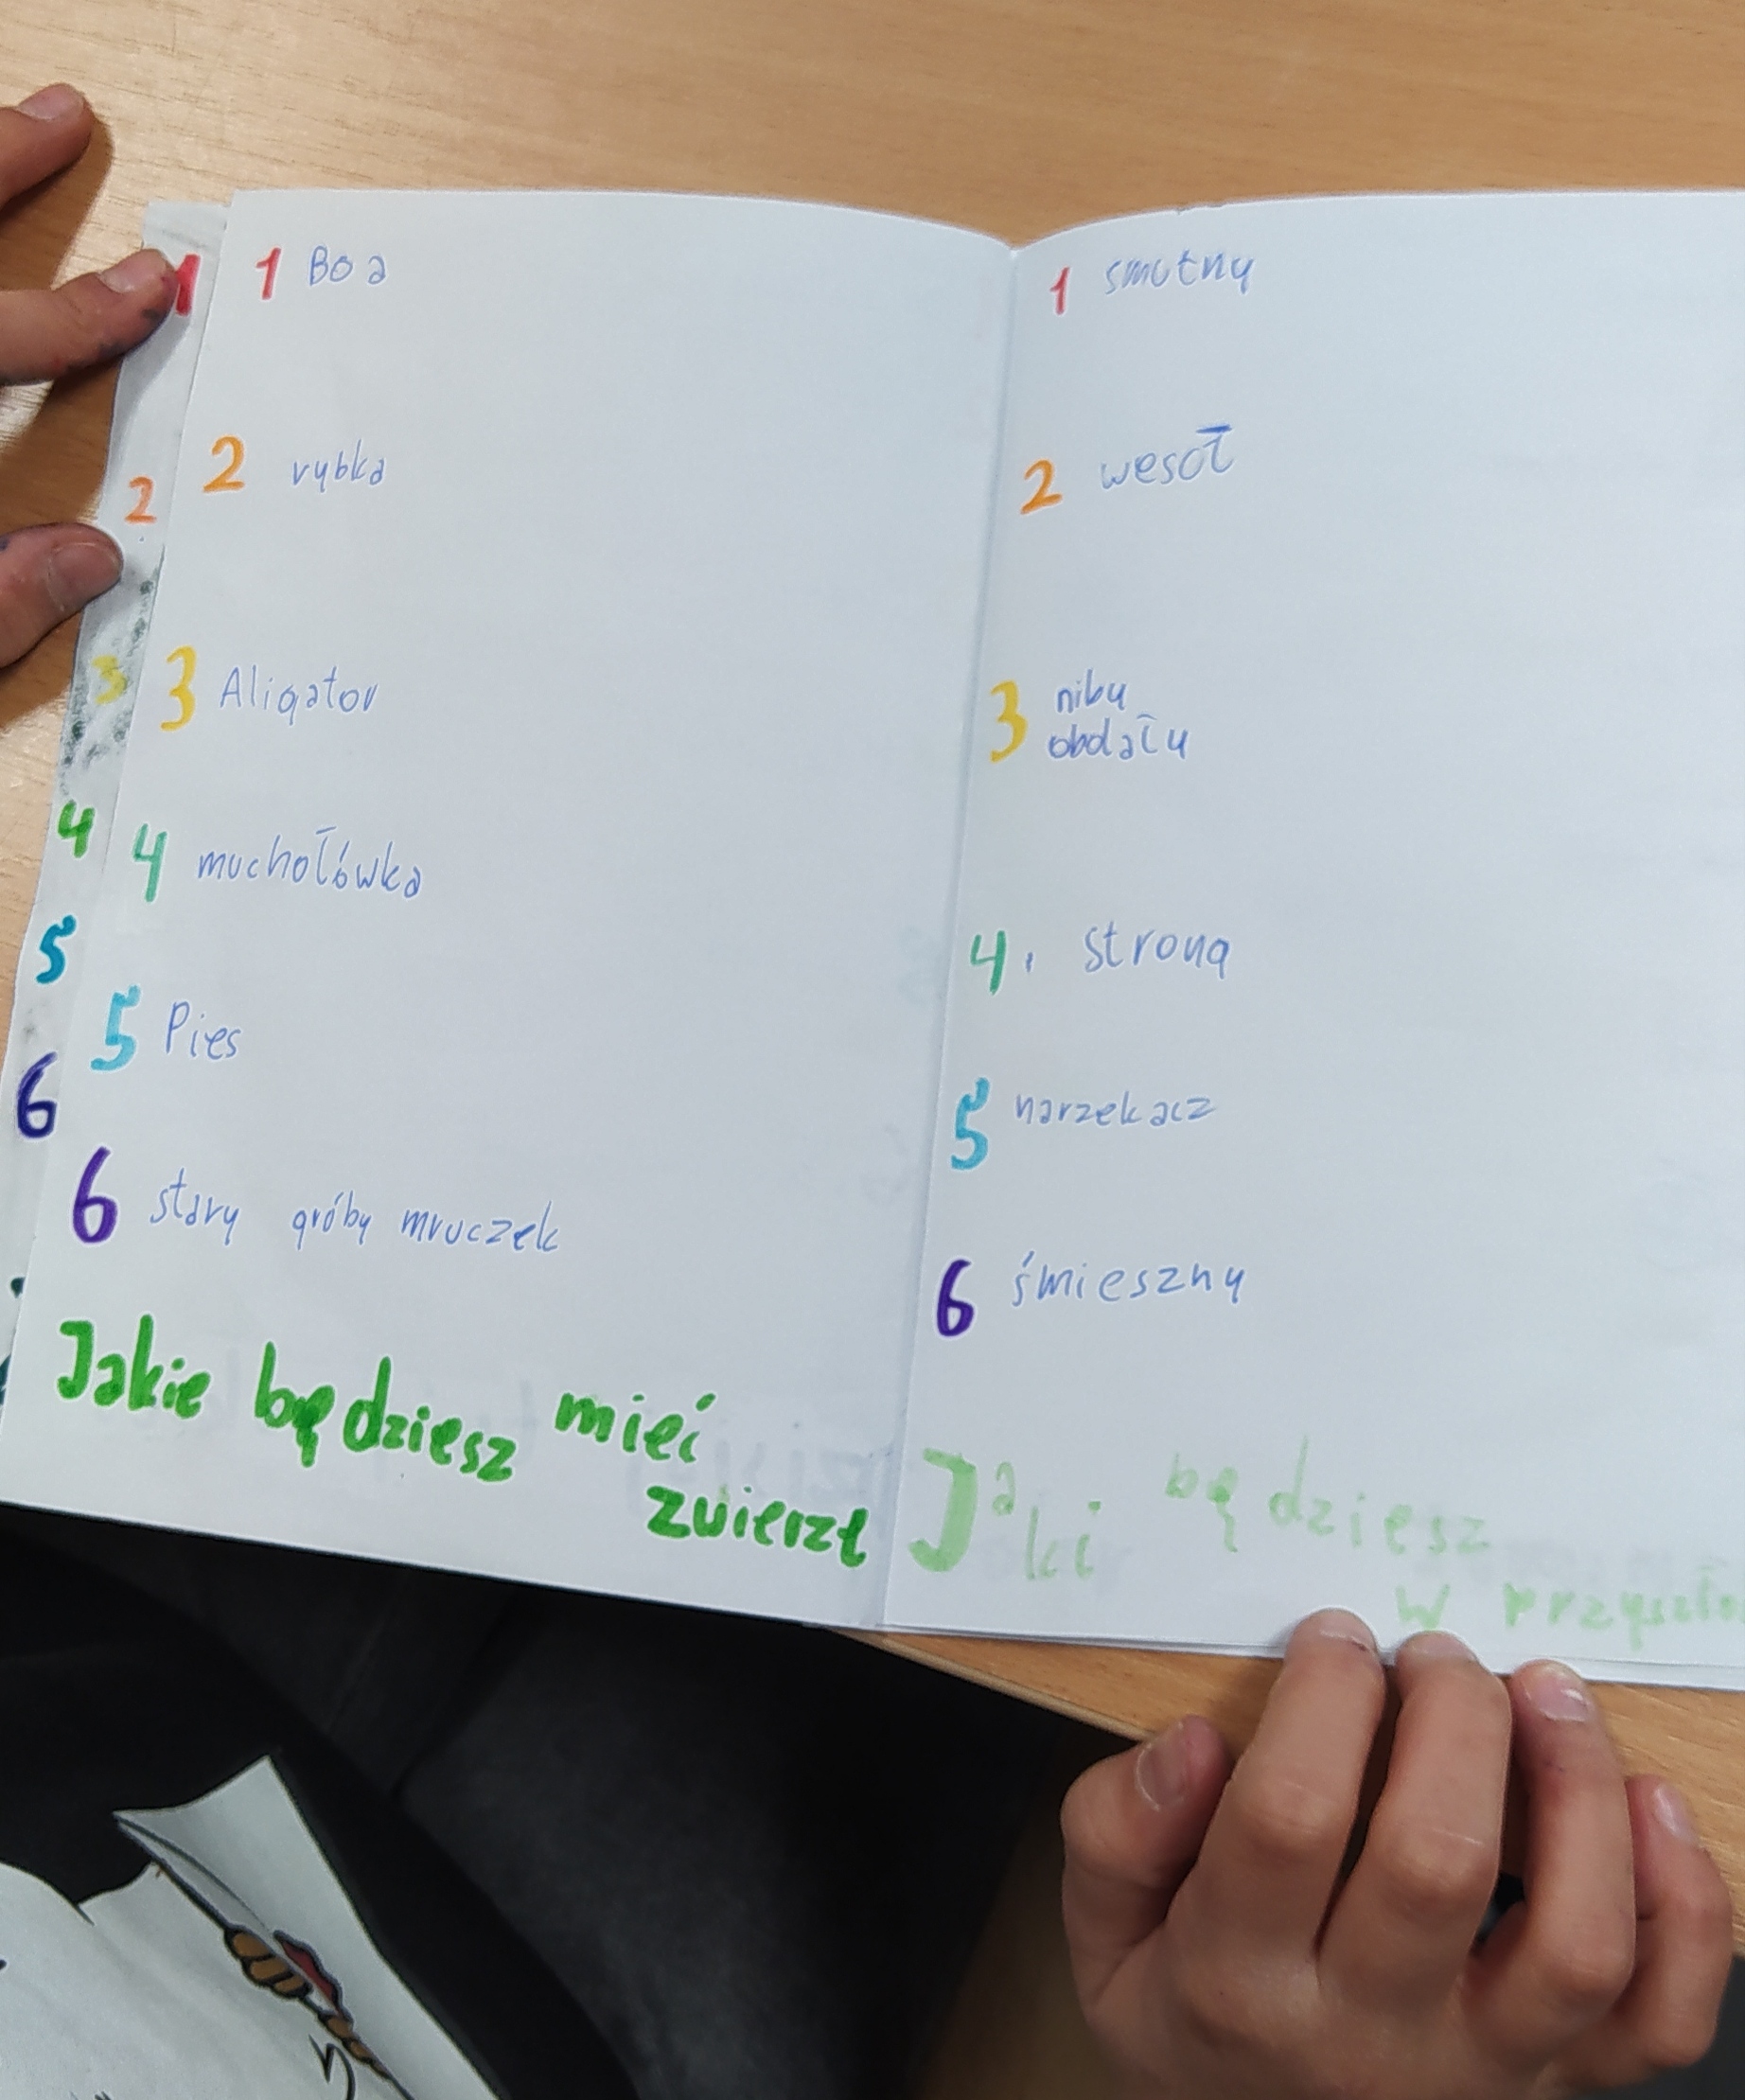 1
2
3
4
5
6
1 Boa
2 rybka
3 Aligator
4 muchołówka
5 Pies
6 stary gróby mruczek
Jakie będziesz mieć
zwierzę
1 smutny
2 wesoł
3 niby
obdału
4. strona
5 narzekacz
6 śmieszny
Jaki będziesz
w